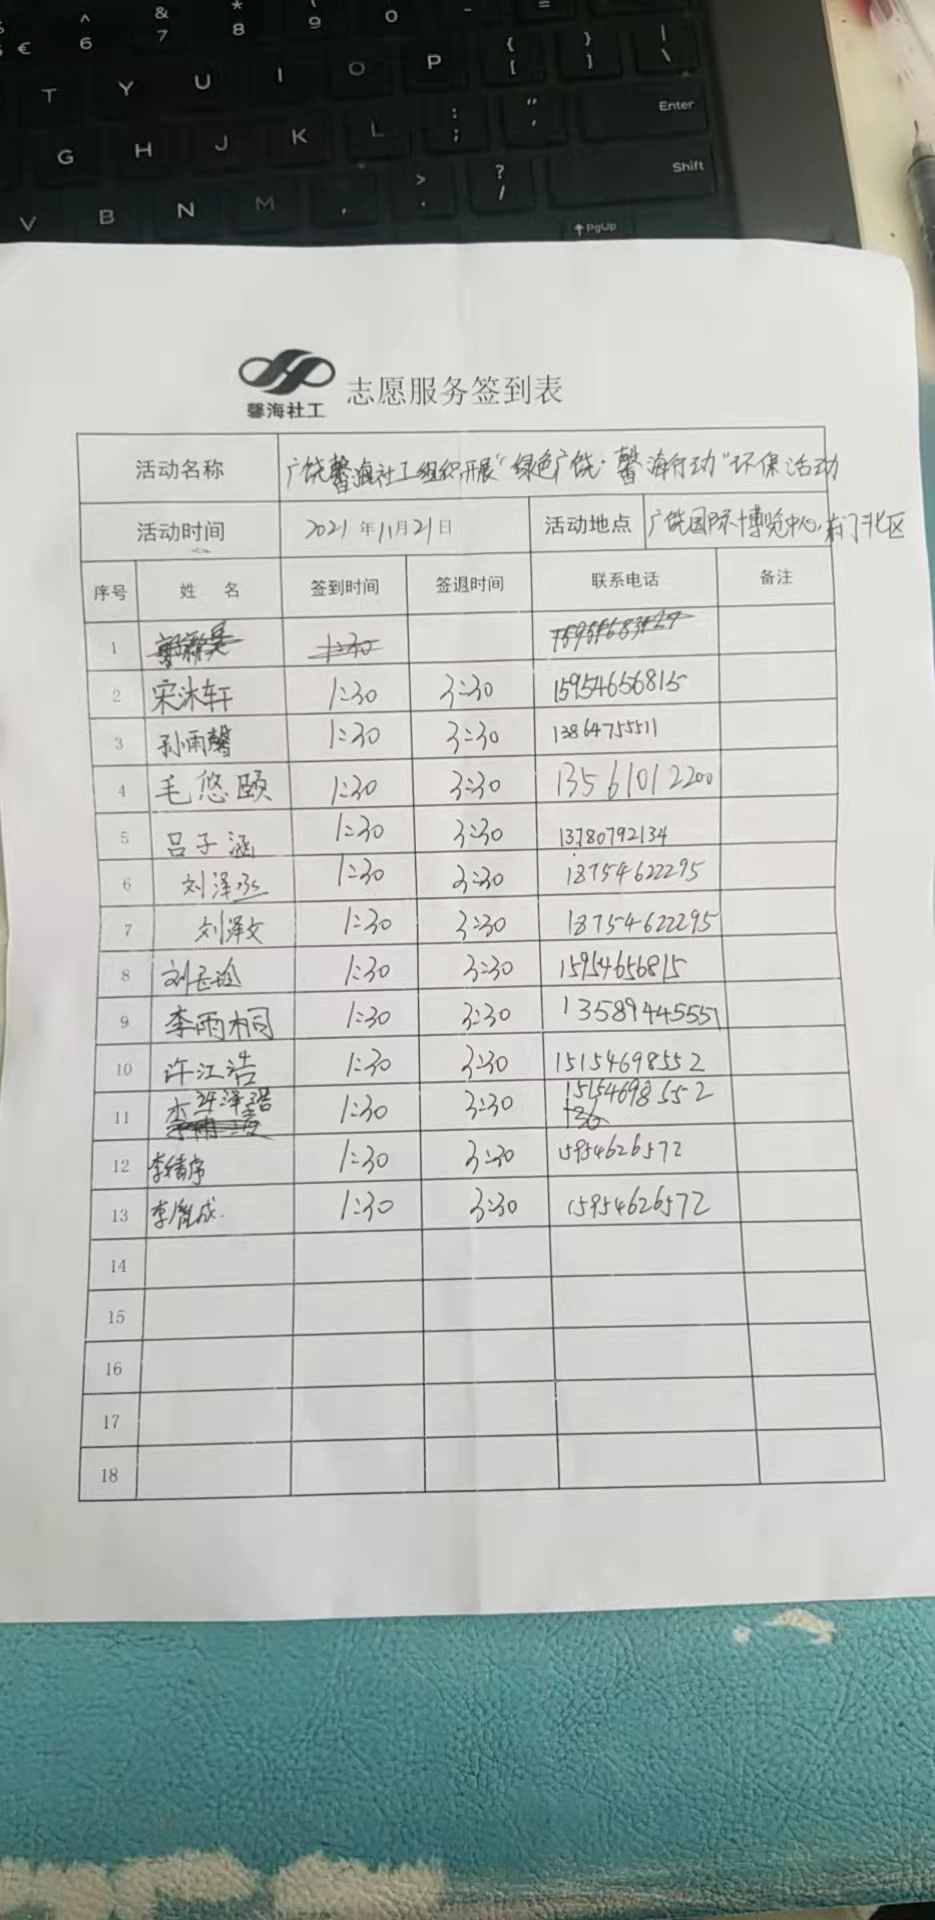 ^ & * ( )
€ 6 7 8 9 0 - =
T Y U I O P { [ } ] | \
G H J K L : ; " ' Enter
V B N M , > . ? / Shift
↑ PgUp
馨海社工
志愿服务签到表
活动名称 广饶馨海社工组织开展“绿色广饶·馨海行动”环保活动
活动时间 2021年11月21日 活动地点 广饶国际博览中心,南门北区
序号 姓 名 签到时间 签退时间 联系电话 备注
1 1:30
2 宋沐轩 1:30 3:30 15954656815
3 孙雨馨 1:30 3:30 13864755511
4 毛悠颐 1:30 3:30 13561012200
5 吕子涵 1:30 3:30 13780792134
6 刘泽丞 1:30 3:30 18754622295
7 刘泽文 1:30 3:30 18754622295
8 1:30 3:30 15954656815
9 李雨桐 1:30 3:30 13589445551
10 许江浩 1:30 3:30 15154698552
11 许泽浩 1:30 3:30 15154698552
12 1:30 3:30 15954626572
13 1:30 3:30 15954626572
14
15
16
17
18